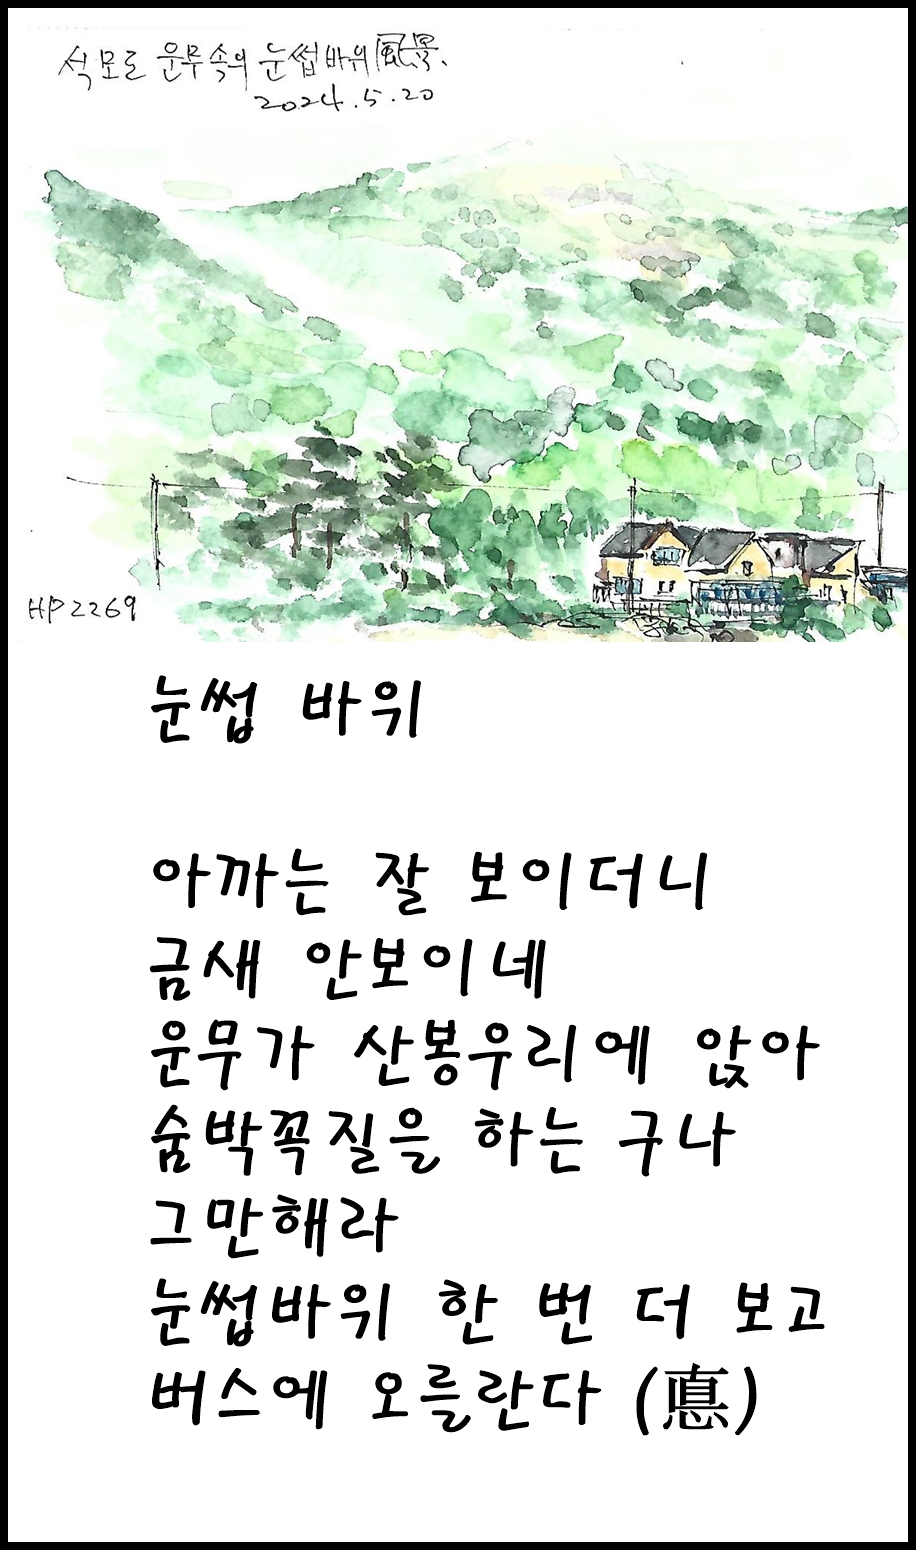 석모도 운무속의 눈썹바위 風景.
2024.5.20
HP2269
눈썹 바위
아까는 잘 보이더니
금새 안보이네
운무가 산봉우리에 앉아
숨박꼭질을 하는 구나
그만해라
눈썹바위 한 번 더 보고
버스에 오를란다 (悳)